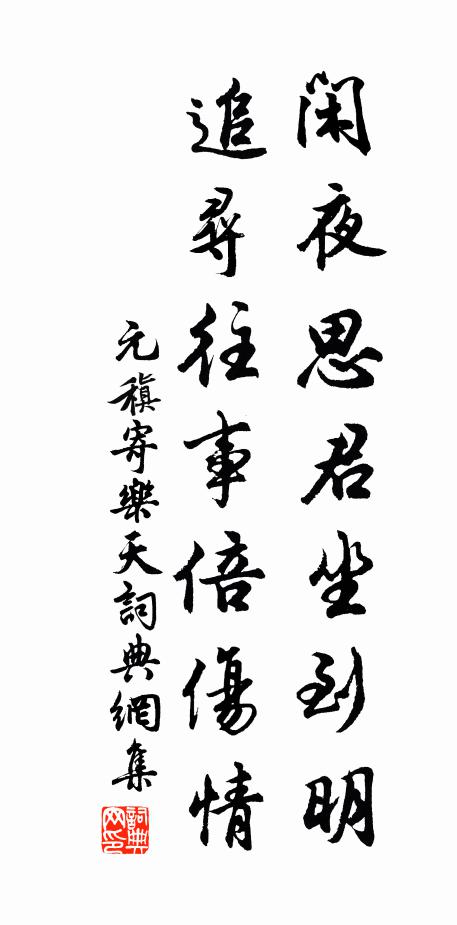 閑夜思君坐到明
追尋往事倍傷情
元稹寄樂天詞典網集
詞典网印